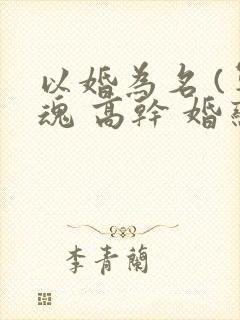 以婚為名（
魂 高幹 婚
李青蘭